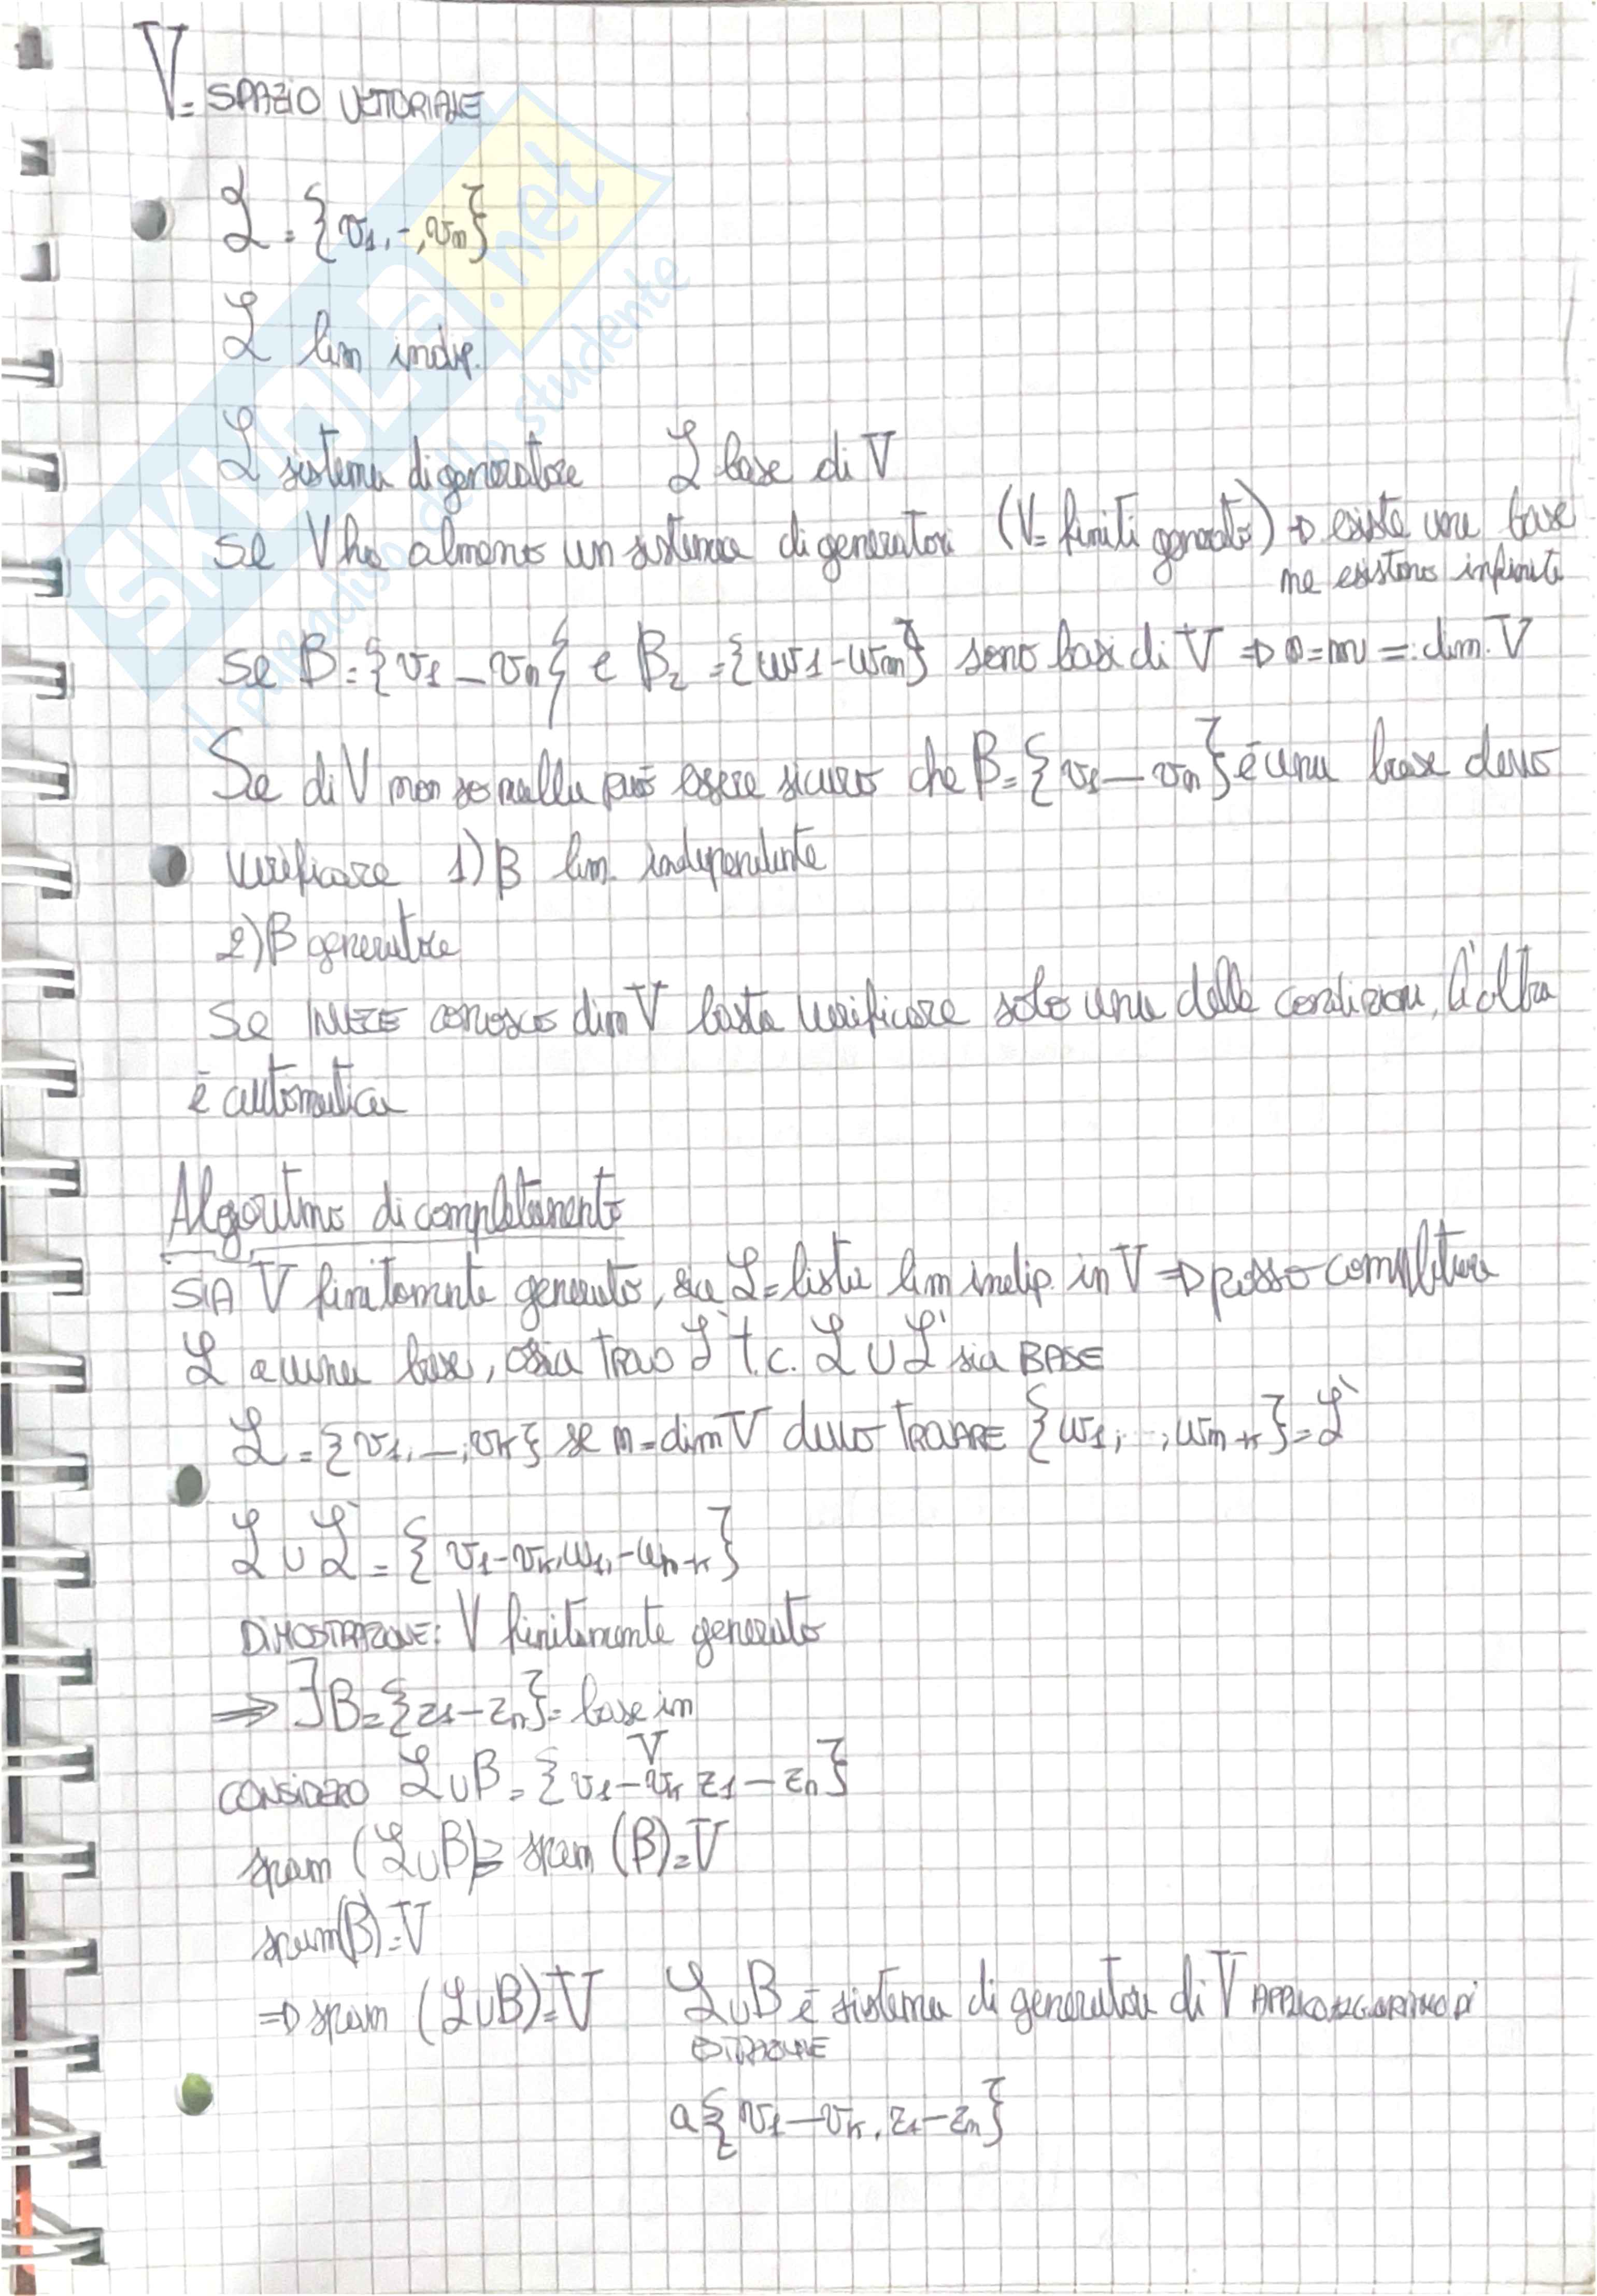 V = SPAZIO VETTORIALE
ℒ = {v1, -, vn}
ℒ lin indip.
ℒ sistema di generatore ℒ base di V
se V ha almeno un sistema di generatori (V = finiti generato) ⇒ esiste una base
ne esistono infinite
se B = {v1 _ vn} e B2 = {w1 - wm} sono basi di V ⇒ n = m =: dim. V
Se di V non so nulla può essere sicuro che B = {v1 — vn} è una base devo
verificare 1) B lin. indipendente
2) B generatore
se INVECE conosco dim V basta verificare solo una delle condizioni, l'altra
è automatica
Algoritmo di completamento
SIA V finitamente generato, sia ℒ = lista lin indip. in V ⇒ posso completare
ℒ a una base, ossia trovo ℒ' t.c. ℒ ∪ ℒ' sia BASE
ℒ = {v1, —, vk} se n = dim V devo TROVARE {w1, -, wn-k} = ℒ'
ℒ ∪ ℒ' = {v1 - vk, w1, - wn-k}
DIMOSTRAZIONE: V finitamente generato
⇒ ∃ B = {z1 - zn} = base in
V
CONSIDERO ℒ ∪ B = {v1 - vk z1 - zn}
span (ℒ ∪ B) ⊇ span (B) = V
span(B) = V
⇒ span (ℒ ∪ B) = V ℒ ∪ B è sistema di generatori di V APPLICO ALGORITMO DI
ESTRAZIONE
a {v1 — vk, z1 - zn}
SKUOLA.net
il paradiso dello studente